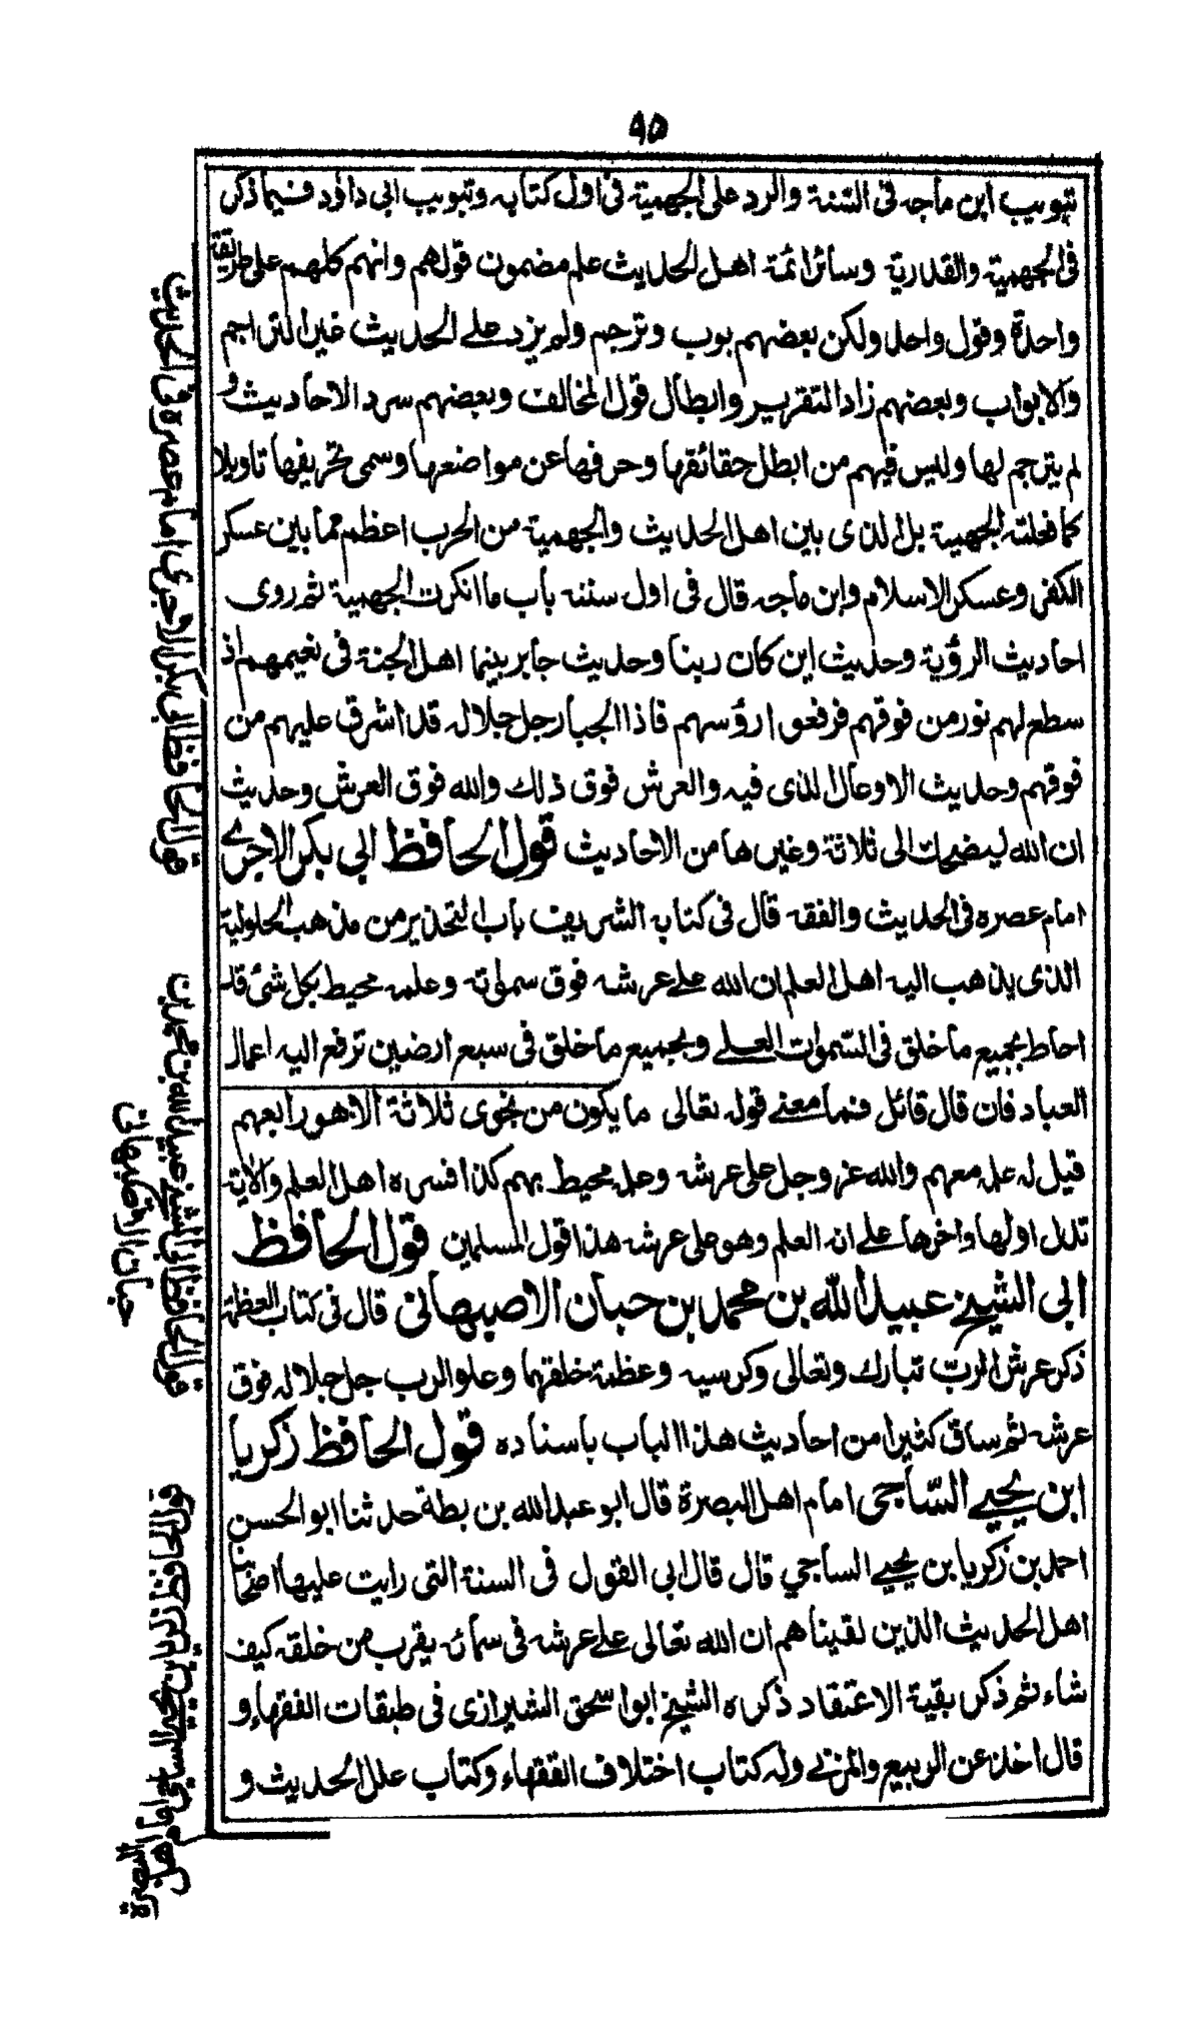 ٩٥
تبويب ابن ماجه فى السنة والرد على الجهمية فى اول كتابه وتبويب ابى داؤد فيما ذكر
فى الجهمية والقدرية وسائر ائمة اهل الحديث علم مضمون قولهم وانهم كلهم على طريقة
واحدة وقول واحد ولكن بعضهم بوب وترجم ولم يزد على الحديث غير التراجم
والابواب وبعضهم زاد التقرير وابطال قول المخالف وبعضهم سرد الاحاديث و
لم يترجم لها وليس فيهم من ابطل حقائقها وحرفها عن مواضعها وسمى تحريفها تاويلا
كما فعلته الجهمية بل الذى بين اهل الحديث والجهمية من الحرب اعظم مما بين عسكر
الكفر وعسكر الاسلام وابن ماجه قال فى اول سننه باب ما انكرت الجهمية ثم روى
احاديث الرؤية وحديث اين كان ربنا وحديث جابر بينما اهل الجنة فى نعيمهم اذ
سطع لهم نور من فوقهم فرفعوا رؤسهم فاذا الجبار جل جلاله قد اشرق عليهم من
فوقهم وحديث الاوعال الذى فيه والعرش فوق ذلك والله فوق العرش وحديث
ان الله ليضحك الى ثلاثة وغيرها من الاحاديث قول الحافظ ابى بكر الاجرى
امام عصره فى الحديث والفقه قال فى كتابه الشريف باب التحذير من مذهب الحلولية
الذى يذهب اليه اهل العلم ان الله على عرشه فوق سمواته وعلمه محيط بكل شئ قد
احاط بجميع ما خلق فى السموات العلى وبجميع ما خلق فى سبع ارضين ترفع اليه اعمال
العباد فان قال قائل فما معنى قوله تعالى ما يكون من نجوى ثلاثة الا هو رابعهم
قيل له علمه معهم والله عز وجل على عرشه وعلمه محيط بهم كذا فسره اهل العلم والاية
تدل اولها واخرها على انه العلم وهو على عرشه هذا قول المسلمين قول الحافظ
ابى الشيخ عبيد الله بن محمد بن حبان الاصبهانى قال فى كتاب العظمة
ذكر عرش الرب تبارك وتعالى وكرسيه وعظمة خلقهما وعلو الرب جل جلاله فوق
عرشه ثم ساق كثيرا من احاديث هذا الباب باسناده قول الحافظ زكريا
ابن يحيى الساجى امام اهل البصرة قال ابو عبد الله بن بطة حدثنا ابو الحسن
احمد بن زكريا بن يحيى الساجي قال قال ابى القول فى السنة التى رايت عليها اصحابنا
اهل الحديث الذين لقيناهم ان الله تعالى على عرشه فى سمائه يقرب من خلقه كيف
شاء ثم ذكر بقية الاعتقاد ذكره الشيخ ابو اسحق الشيرازى فى طبقات الفقهاء و
قال اخذ عن الربيع والمزنى وله كتاب اختلاف الفقهاء وكتاب علل الحديث و
قول الحافظ ابى بكر الاجرى امام عصره فى الحديث
قول الحافظ ابى الشيخ عبيد الله بن محمد بن
حبان الاصبهانى